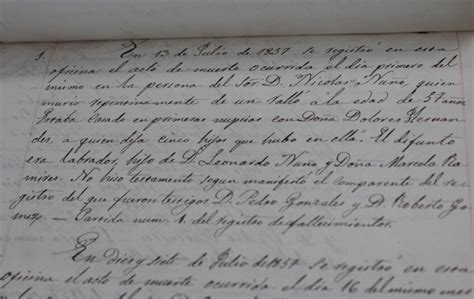 1. En 13 de Julio de 1857 se registró en esta
oficina el acto de muerte ocurrida el dia primero del
mismo en la persona del Sor. D. Nicolas Nuño, quien
murio repentinamente de un a la edad de 57 años
Estaba Casado en primeras nupcias con Doña Dolores Hernan
des, a quien deja cinco hijos que hubo en ella. El difunto
era labrador, hijo de D. Leonardo Nuño y Doña Marcela Ra
mires. No hiso testamento segun manifestó el comparente del re
gistro del que fueron testigos D. Pedro Gonzales y D. Roberto Go
mez. — Partida num. 1 del registro de fallecimientos.
En Diez y siete de Julio de 1857 se registró en esta
oficina el acto de muerte ocurrida el dia 16 del mismo